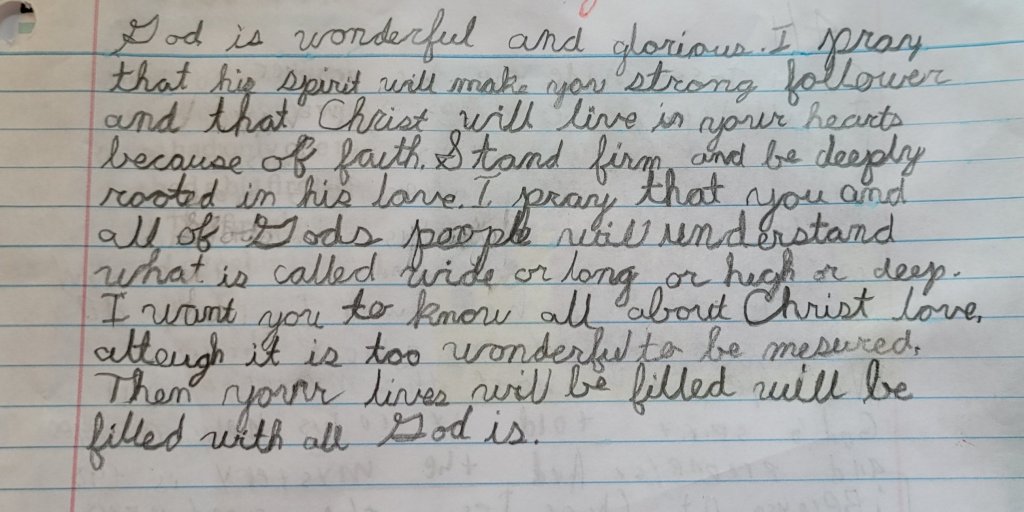 God is wonderful and glorious. I pray
that his spirit will make you strong follower
and that Christ will live in your hearts
because of faith. Stand firm and be deeply
rooted in his love. I pray that you and
all of Gods people will understand
what is called wide or long or high or deep.
I want you to know all about Christ love,
altough it is too wonderful to be mesured.
Then your lives will be filled will be
filled with all God is.